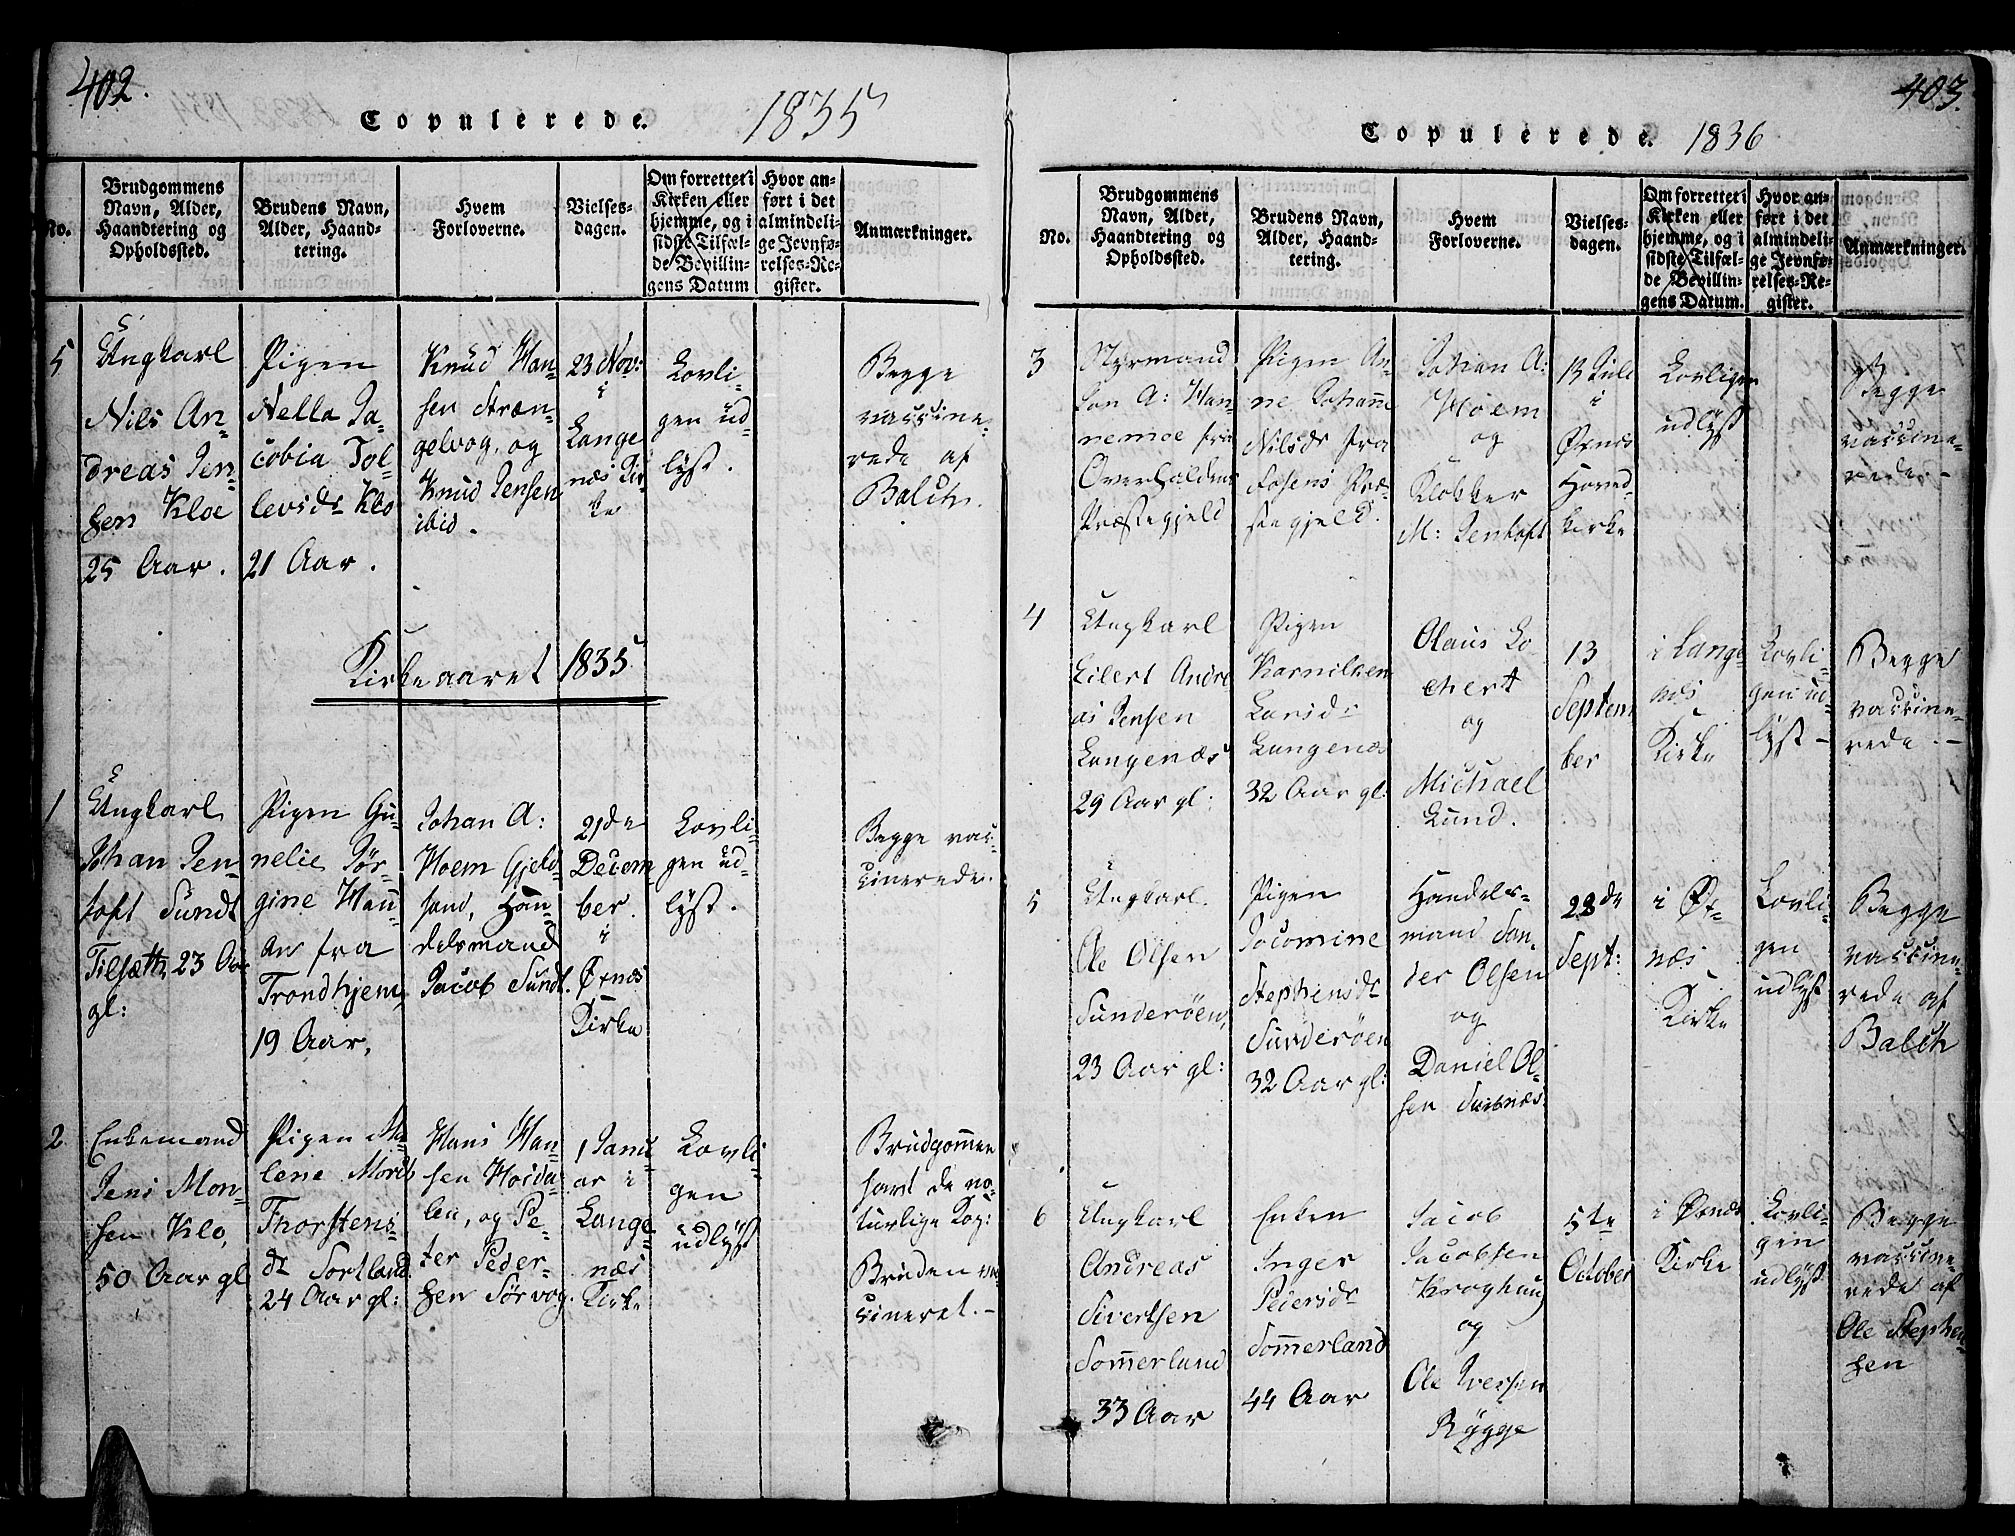 402.
Copulerede. 1835
No.
Brudgommens
Navn, Alder,
Haandtering og
Opholdssted.
Brudens Navn,
Alder, Haand-
tering.
Hvem
Forloverne.
Vielses-
dagen.
Om forrettet i
Kirken eller
hjemme, og i
sidste Tilfæl-
de Bevillin-
gens Datum
Hvor an-
ført i det
almindeli-
ge Jevnfø-
relses-Re-
gister.
Anmærkninger.
5
Ungkarl
Nils An-
dreas Jen-
sen Kloe
25 Aar.
Pigen
Nella Ja-
cobia Tol-
levsdr Klo
21 Aar.
Knud Han-
sen Stræn-
gelvog, og
Knud Jensen
ibid.
23 Nov:
i
Lange
næs Kir-
ke
Lovli-
gen ud-
lyst.
Begge
vaccine-
rede af
Balch.
Kirkeaaret 1835
1
Ungkarl
Johan Jen-
toft Sundt
Tilsætt, 23 Aar
gl:
Pigen Gu-
nelie Jør-
gine Hau-
an fra
Trondhjem,
19 Aar,
Johan A:
Hoem Gjeld-
sand, Han-
delsmand
Jacob Sundt.
21de
Decem-
ber.
i
Øxnes
Kirke
Lovli-
gen ud-
lyst.
Begge vac-
cinerede.
2
Enkemand
Jens Mon-
sen Klo,
50 Aar gl
Pigen Ma-
lene
Thorstens
dr Sortland
24 Aar gl:
Hans Han-
sen
og Pe-
ter Peder-
sen Sørvog.
1 Janu
ar i
Lange-
næs
Kirke
Lovli-
gen
udlyst
Brudgommen
havt de na-
turlige Kop:
Bruden vac
cineret. -
403.
Copulerede. 1836
No.
Brudgommens
Navn, Alder,
Haandtering og
Opholdssted.
Brudens Navn,
Alder, Haand-
tering.
Hvem
Forloverne.
Vielses-
dagen.
Om forrettet i
Kirken eller
hjemme, og i
sidste Tilfæl-
de Bevillin-
gens Datum.
Hvor an-
ført i det
almindeli-
ge Jevnfø-
relses-Re-
gister.
Anmærkninger.
3
Styrmand
A: Han-
nemoe fra
Overhaldens
Præstegjeld
Pigen An-
ne Johanne
Nilsdr fra
Fosens Præ-
stegjeld.
Johan A:
Hoem
og
Klokker
M: Jentoft
13 Juli
i
Øxnes
Hoved-
kirke
Lovligen
udlyst
Begge
vaccine-
rede. -
4
Ungkarl
Eilert Andre
as Jensen
Langenæs
29 Aar gl:
Pigen
Larsdr
Langenæs
32 Aar gl:
Olaus Lo
chert
og
Michael
Lund.
13
Septem
ber
i Lange-
næs
Kirke
Lovli-
gen ud-
lyst -
Begge
vaccine-
rede. -
5
Ungkarl.
Ole Olsen
Sunderöen,
23 Aar gl:
Pigen
Jacomine
Stephensdr
Sunderöen
32 Aar gl:
Handels-
mand San-
der Olsen
og
Daniel Ol-
sen
28de
Sept:
i Øx-
næs
Kirke
Lovli-
gen
udlyst
Begge
vaccine-
rede af
Balch
6
Ungkarl
Andreas
Sivertsen
Sommerland
33 Aar
Enken
Inger
Pedersdr
Sommerland
44 Aar
Jacob
Jacobsen
og
Ole Iversen
Rygge
5te
October
i Øxnes
Kirke
Lovli-
gen
udlyst
Begge
vaccine-
rede af
Ole Stephen-
sen